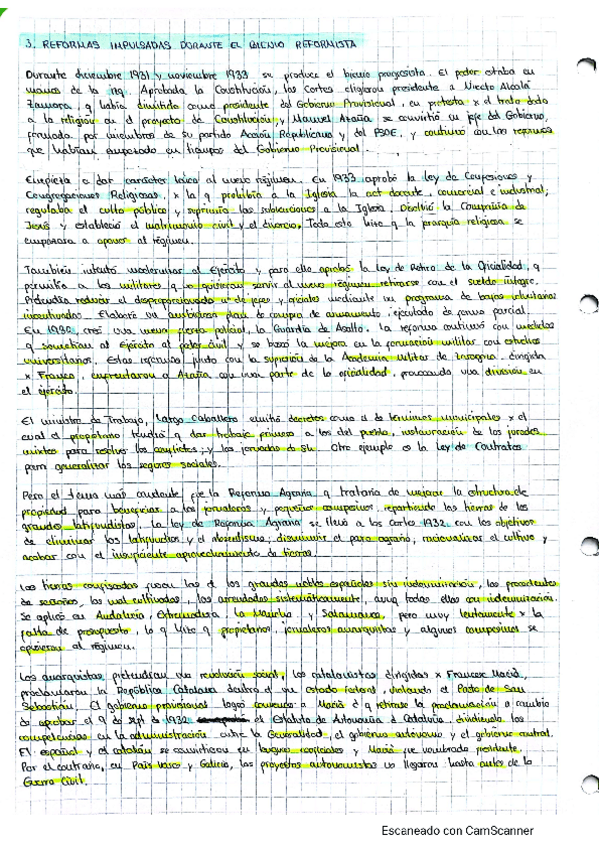 3. REFORMAS IMPULSADAS DURANTE EL BIENIO REFORMISTA
Durante diciembre 1931 y noviembre 1933 se produce el bienio progresista. El poder estaba en
manos de la izq. Aprobada la Constitución, las Cortes eligieron presidente a Niceto Alcalá
Zamora, q había dimitido como presidente del Gobierno Provisional, en protesta x el trato dado
a la religión en el proyecto de Constitución, y Manuel Azaña se convirtió en jefe del Gobierno,
formado por miembros de su partido Acción Republicana y del PSOE, y continuó con las reformas
que habían empezado en tiempos del Gobierno Provisional.
Empieza a dar carácter laico al nuevo régimen. En 1933 aprobó la Ley de Confesiones y
Congregaciones Religiosas, x la q prohibía a la Iglesia la act docente, comercial e industrial;
regulaba el culto público y suprimía las subvenciones a la Iglesia. Disolvió la Compañía de
Jesús y estableció el matrimonio civil y el divorcio. Todo esto hizo q la jerarquía religiosa se
empezara a oponer al régimen.
También intentó modernizar al Ejército y para ello aprobó la Ley de Retiro de la Oficialidad, q
permitía a los militares q no quisieran servir al nuevo régimen retirarse con el sueldo íntegro.
Pretendía reducir el desproporcionado nº de jefes y oficiales mediante un programa de bajas voluntarias
incentivadas. Elaboró un ambicioso plan de compra de armamento, ejecutado de forma parcial.
En 1932, creó una nueva fuerza policial, la Guardia de Asalto. La reforma continuó con medidas
q sometían al Ejército al poder civil y se buscó la mejora en la formación militar con estudios
universitarios. Estas reformas junto con la supresión de la Academia Militar de Zaragoza, dirigida
x Franco, enfrentaron a Azaña con una parte de la oficialidad, provocando una división en
el ejército.
El ministro de Trabajo, Largo Caballero emitió decretos como el de términos municipales x el
cual el propietario tendría q dar trabajo primero a los del pueblo, instauración de los jurados
mixtos para resolver los conflictos, y las jornadas de 8h. Otro ejemplo es la Ley de Contratos
para generalizar los seguros sociales.
Pero el tema más candente fue la Reforma Agraria q trataría de mejorar la estructura de
propiedad para beneficiar a los jornaleros y pequeños campesinos, repartiendo las tierras de los
grandes latifundistas. La ley de Reforma Agraria se llevó a las Cortes 1932, con los objetivos
de eliminar los latifundios y el absentismo, disminuir el paro agrario, racionalizar el cultivo y
acabar con el insuficiente aprovechamiento de tierras.
Las tierras confiscadas fueron las d los grandes nobles españoles sin indemnización, las procedentes
de señoríos, las mal cultivadas, las arrendadas sistemáticamente, aunq todas ellas con indemnización.
Se aplicó en Andalucía, Extremadura, La Mancha y Salamanca, pero muy lentamente x la
falta de presupuesto, lo q hizo q propietarios, jornaleros anarquistas y algunos campesinos se
opusieran al régimen.
Los anarquistas pretendían una revolución social, los catalanistas dirigidos x Francesc Macià,
proclamaron la República Catalana dentro d un estado federal, violando el Pacto de San
Sebastián. El gobierno provisional logró convencer a Macià d q retirase la proclamación a cambio
de aprobar el 9 de sept d 1932 el Estatuto de Autonomía d Cataluña, dividiendo las
competencias en la administración entre la Generalidad, el gobierno autónomo y el gobierno central.
El español y el catalán se convirtieron en lenguas cooficiales y Macià fue nombrado presidente.
Por el contrario, en País Vasco y Galicia, los proyectos autonomistas no llegaron hasta antes de la
Guerra Civil.
Escaneado con CamScanner